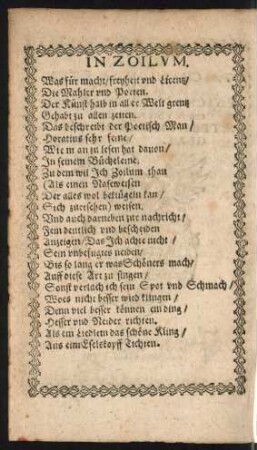 IN ZOILVM.
Was für macht/ freyheit vnd Licentz/
Die Mahler vnd Poeten.
Der Künst halb in all er Welt grentz
Gehabt zu allen zeiten.
Das beschreibt der Poetisch Man/
Horatius sehr feine/
Wie man zu lesen hat dauon/
In seinem Büchleine.
Zu dem wil Jch Zoilum than
(Als einen Naseweisen
Der alles wol betrügein kan/
Sich zuersehen) weisen.
Vnd auch darneben zur nachricht/
Fein deutlich vnd bescheiden
Anzeigen/ Das Jch achte nicht/
Sein vnbefugtes neiden/
Bis so lang er was Schöners mach/
Auff diese Art zu singen/
Sonst verlach ich sein Spot vnd Schmach/
Woes nicht besser wird klingen/
Denn viel besser können ein ding/
Hesser vnd Neider richten.
Als ein Liedlein das schöne Kling/
Aus eim Eselskopff Tichten.